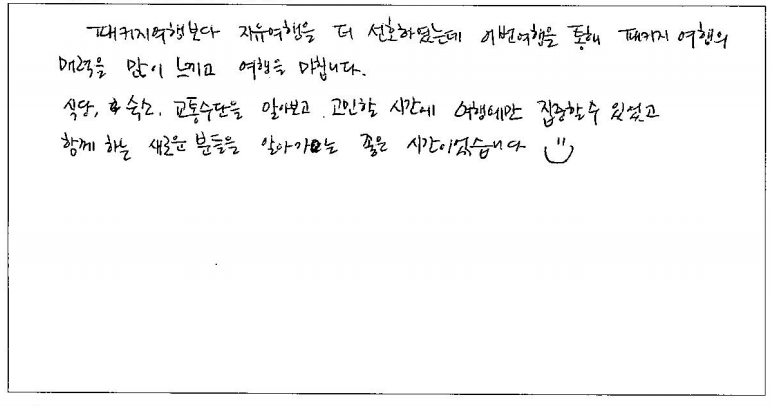 패키지여행보다 자유여행을 더 선호하였는데 이번여행을 통해 패키지 여행의
매력을 많이 느끼고 여행을 마칩니다.
식당, 숙소, 교통수단을 알아보고 고민할 시간에 여행에만 집중할 수 있었고
함께 하는 새로운 분들을 알아가는 좋은 시간이었습니다